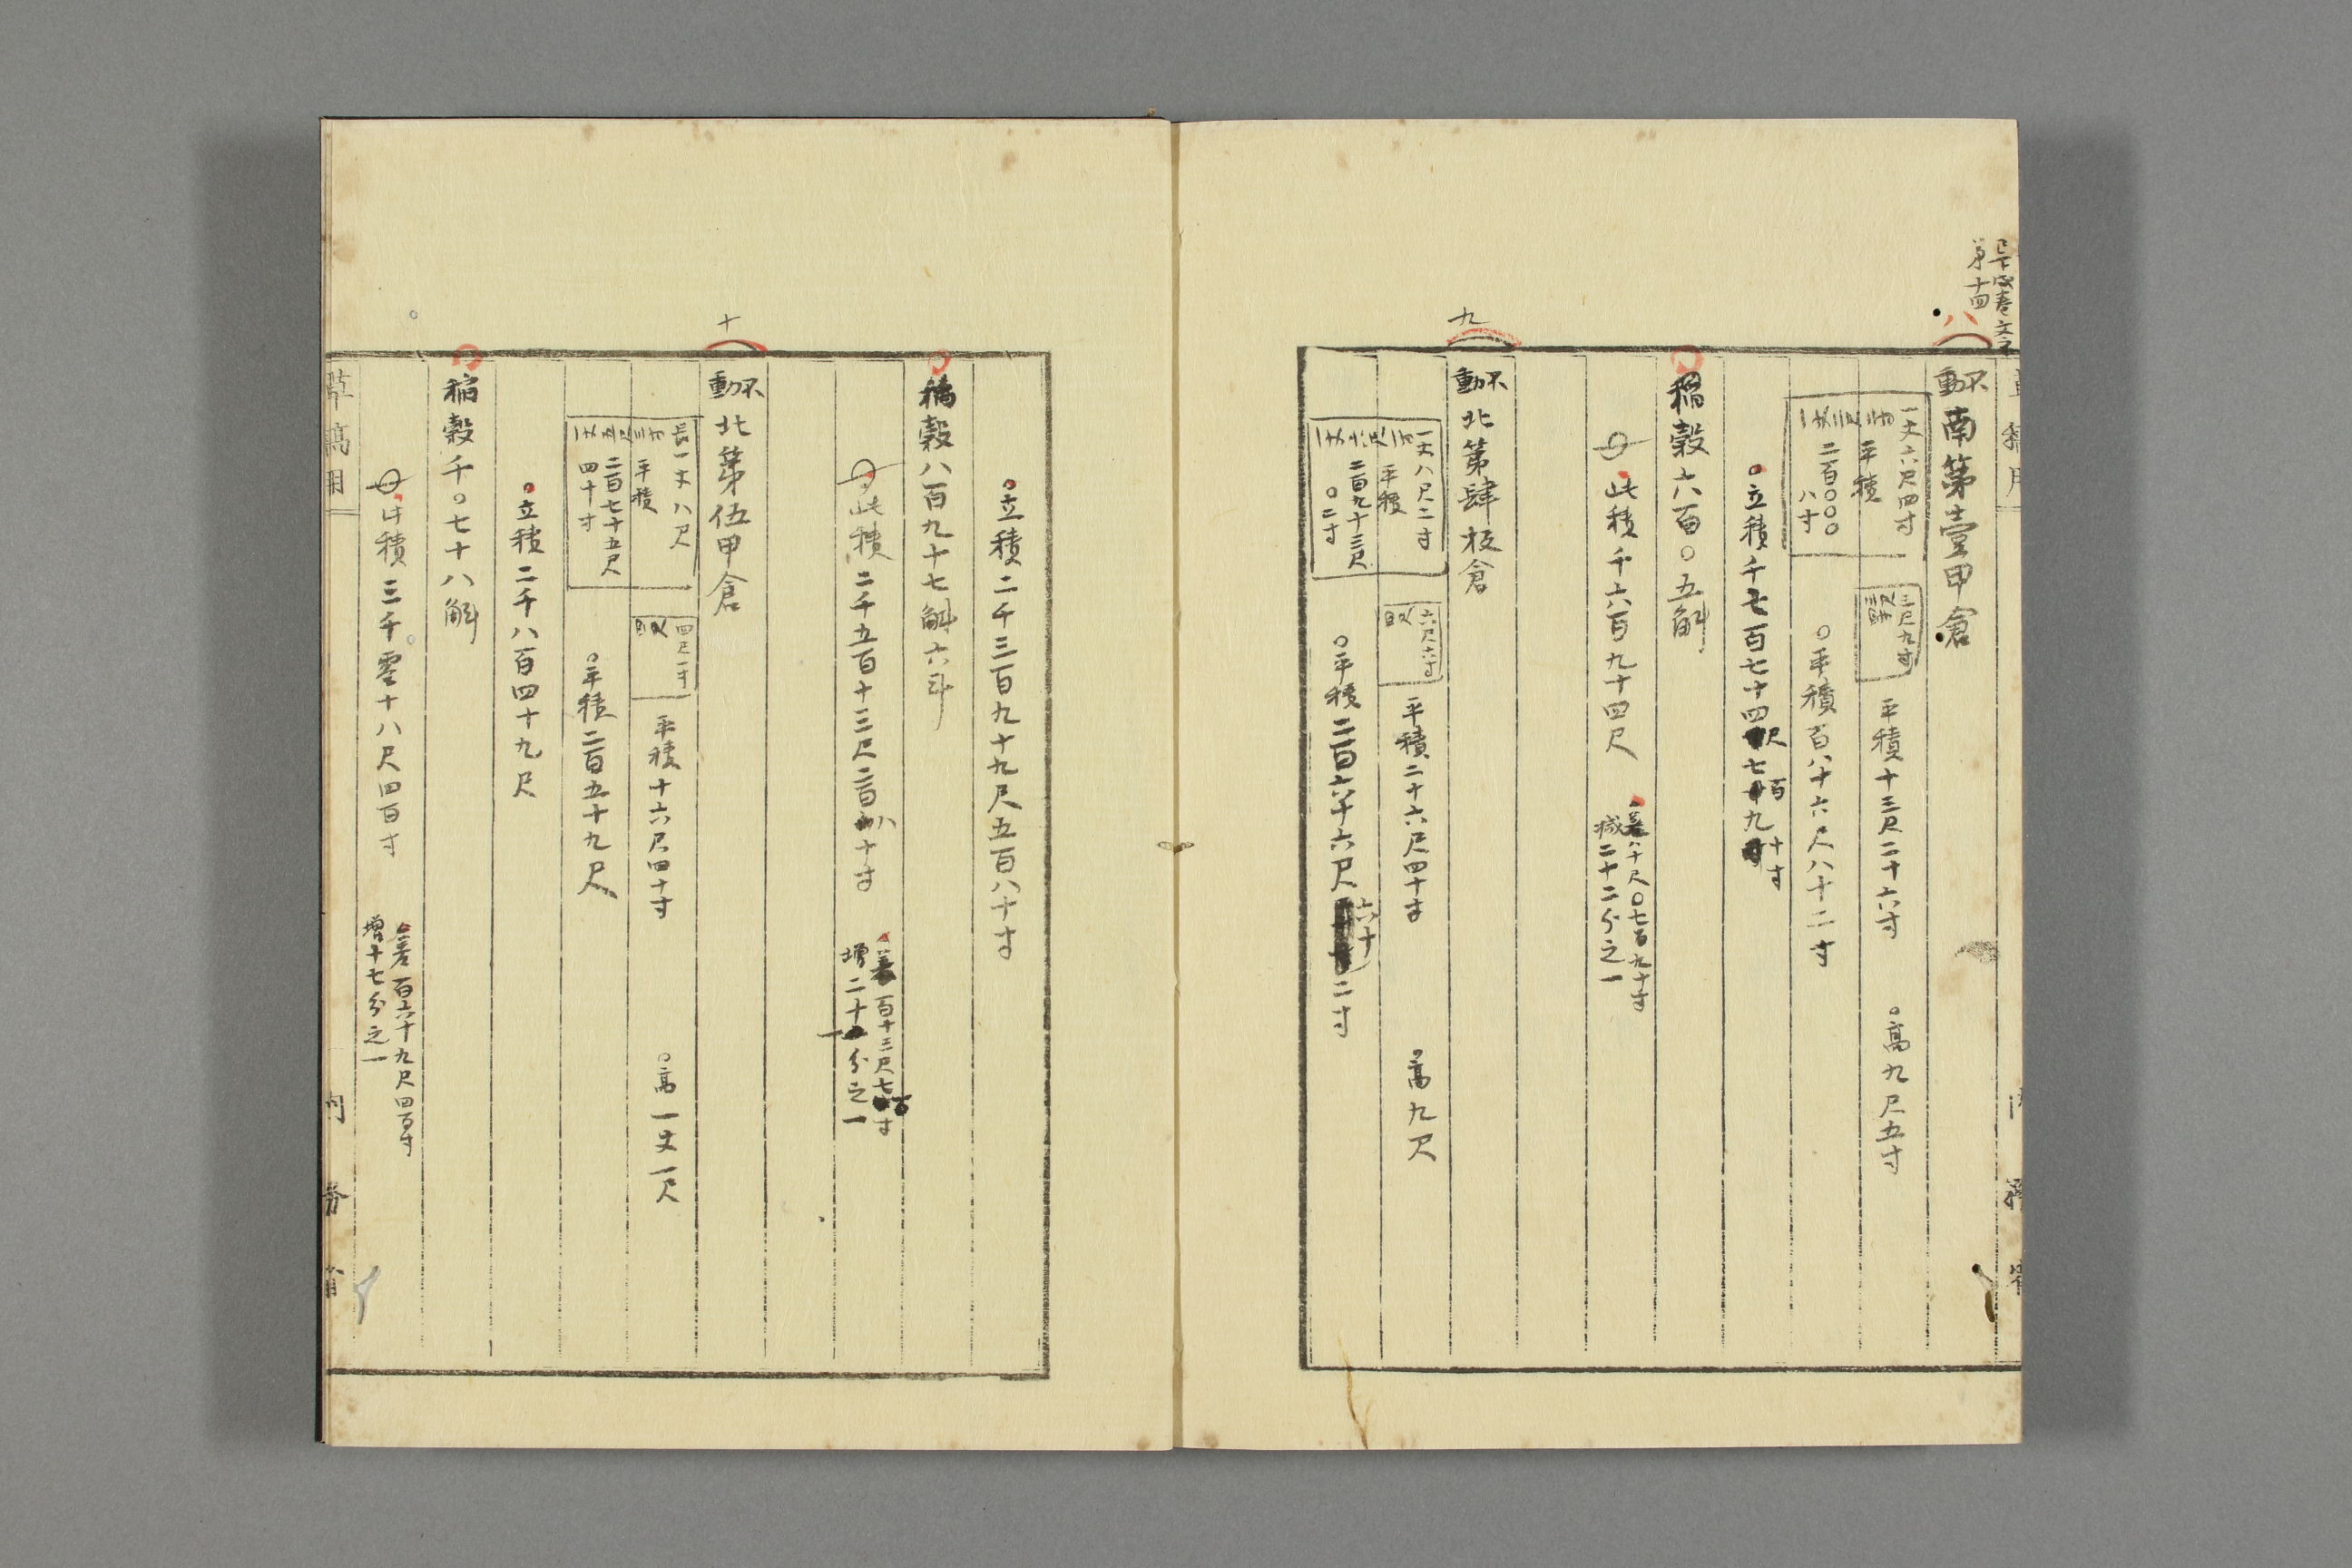 第十四
八
不動 南第壹甲倉
一丈六尺四寸
平積
二百〇〇〇八寸
三尺九寸
平積十三尺二十六寸 〇高九尺五寸
〇平積百八十六尺八十二寸
〇立積千七百七十四尺七百九十寸
稲穀六百〇五斛
此積千六百九十四尺
差八十尺〇七百九十寸
減二十二分之一
九
不動 北第肆板倉
一丈八尺二寸
平積
二百九十三尺〇二寸
六尺六寸
平積二十六尺四十寸 〇高九尺
〇平積二百六十六尺六十二寸
〇立積二千三百九十九尺五百八十寸
稲穀八百九十七斛六斗
此積二千五百十三尺二百八十寸
差百十三尺七百寸
増二十一分之一
十
不動 北第伍甲倉
長一丈八尺
平積
二百七十五尺四十寸
四尺一寸
平積十六尺四十寸 〇高一丈一尺
〇平積二百五十九尺
〇立積二千八百四十九尺
稲穀千〇七十八斛
此積三千零十八尺四百寸
差百六十九尺四百寸
増十七分之一
草稿用
内務省